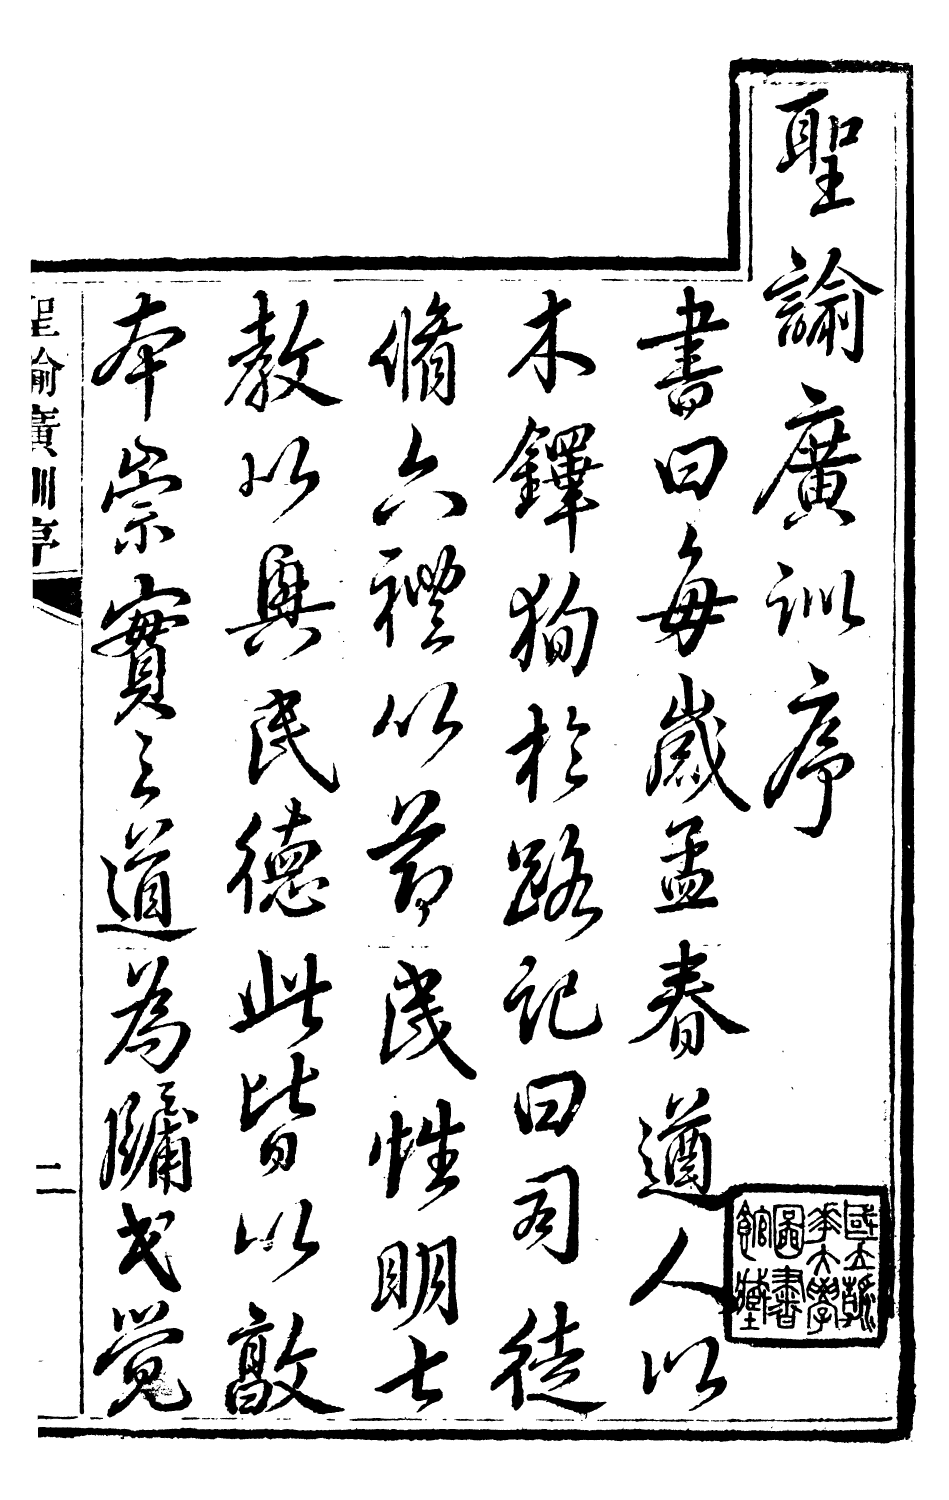 聖諭廣訓序
書曰每歲孟春遒人以
木鐸狥於路記曰司徒
脩六禮以莭民性明七
教以興民德此皆以敦
本崇實之道為牖民覺
聖諭廣訓序
二
國立
華大學
圖書
館藏